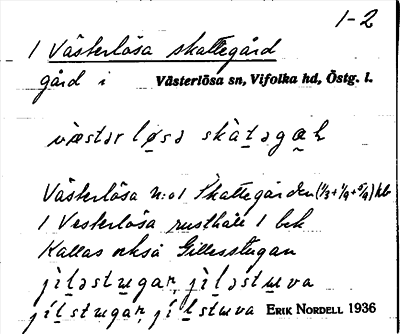 1-2
1 Västerlösa skattegård
gård i Västerlösa sn, Vifolka hd, Östg. l.
væstər løsə skàtəgaɽ
Västerlösa n:o1 Skattegården (1/3+1/9+5/9) hb
1 Vesterlösa rusthåll 1 bek
Kallas också Gillesstugan
jìləstugaṛ, jìləstuva
jílstugaṛ, jílstuva ERIK NORDELL 1936